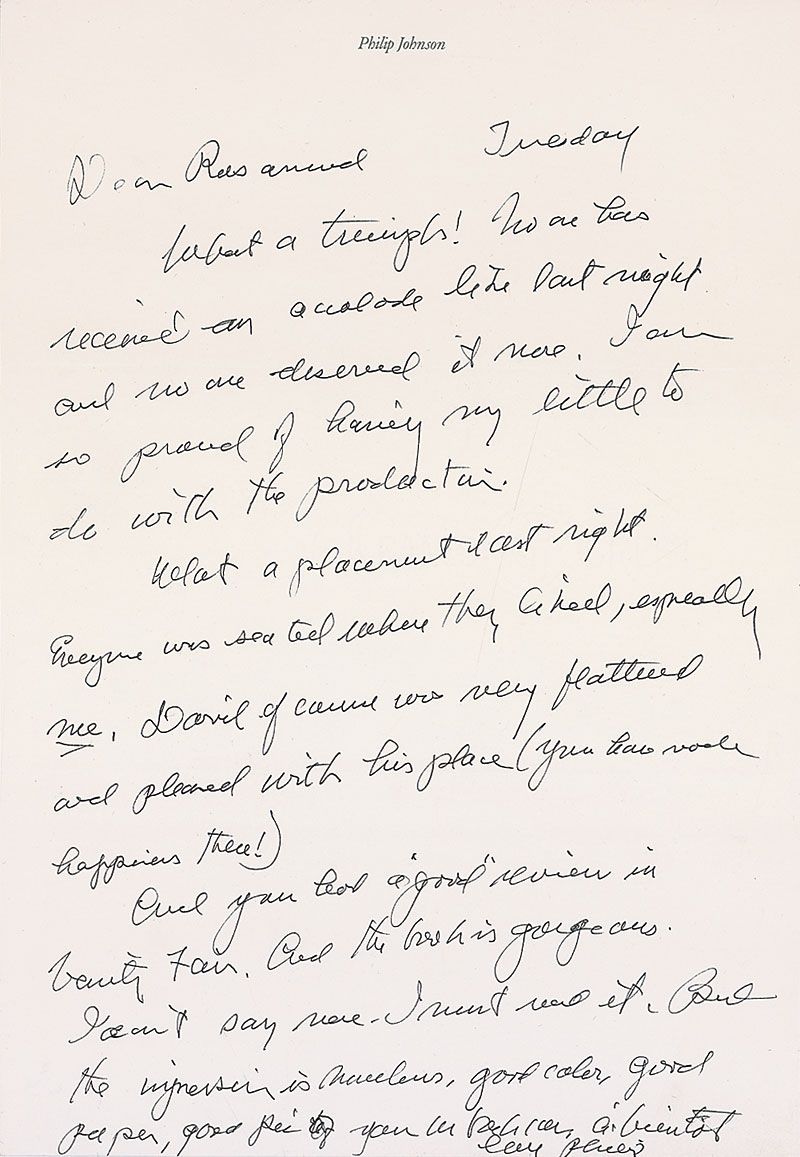 Philip Johnson
Tuesday
Dear Rosamund
What a triumph! No one has
received an accolade like last night
and no one deserved it more. I am
so proud of having my little to
do with the production.
What a placement last night.
Everyone was seated where they liked, especially
me. David of course was very flattered
and pleased with his place (you have made
happiness there!)
And you had a "good" review in
Vanity Fair. And the book is gorgeous.
I can't say more - I must read it. But
the impression is marvelous, good color, good
paper, good pix of you in
à bientôt
love Philip